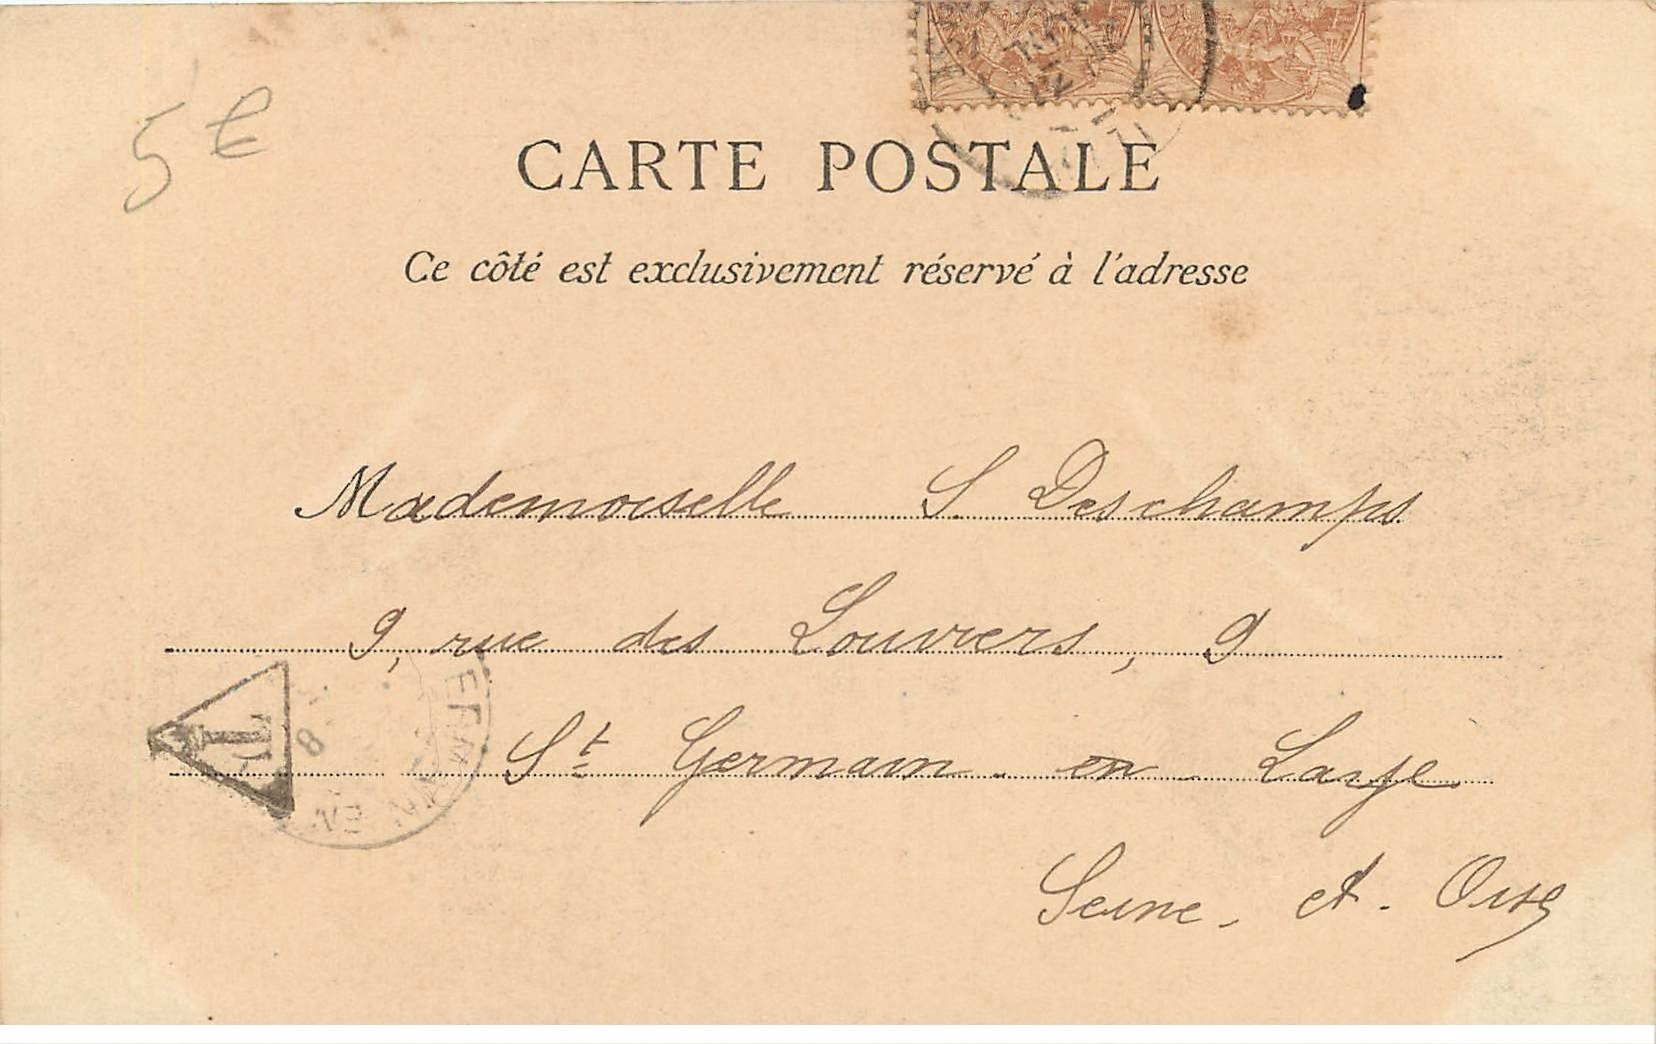 5 €
CARTE POSTALE
Ce côté est exclusivement réservé à l'adresse
Mademoiselle S. Deschamps
9, rue des Louviers, 9
St Germain en Laye
Seine. et. Oise
T
8
ERMAIN EN